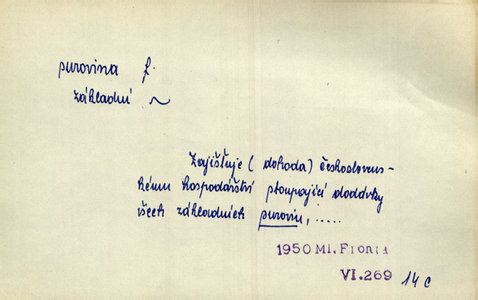 purovina f.
základní ~
Zajišťuje (dohoda) českosloven-
kému hospodářství stoupající doddvky
všech základních purovin, .....
1950 Ml. Fronta
VI.269 14c